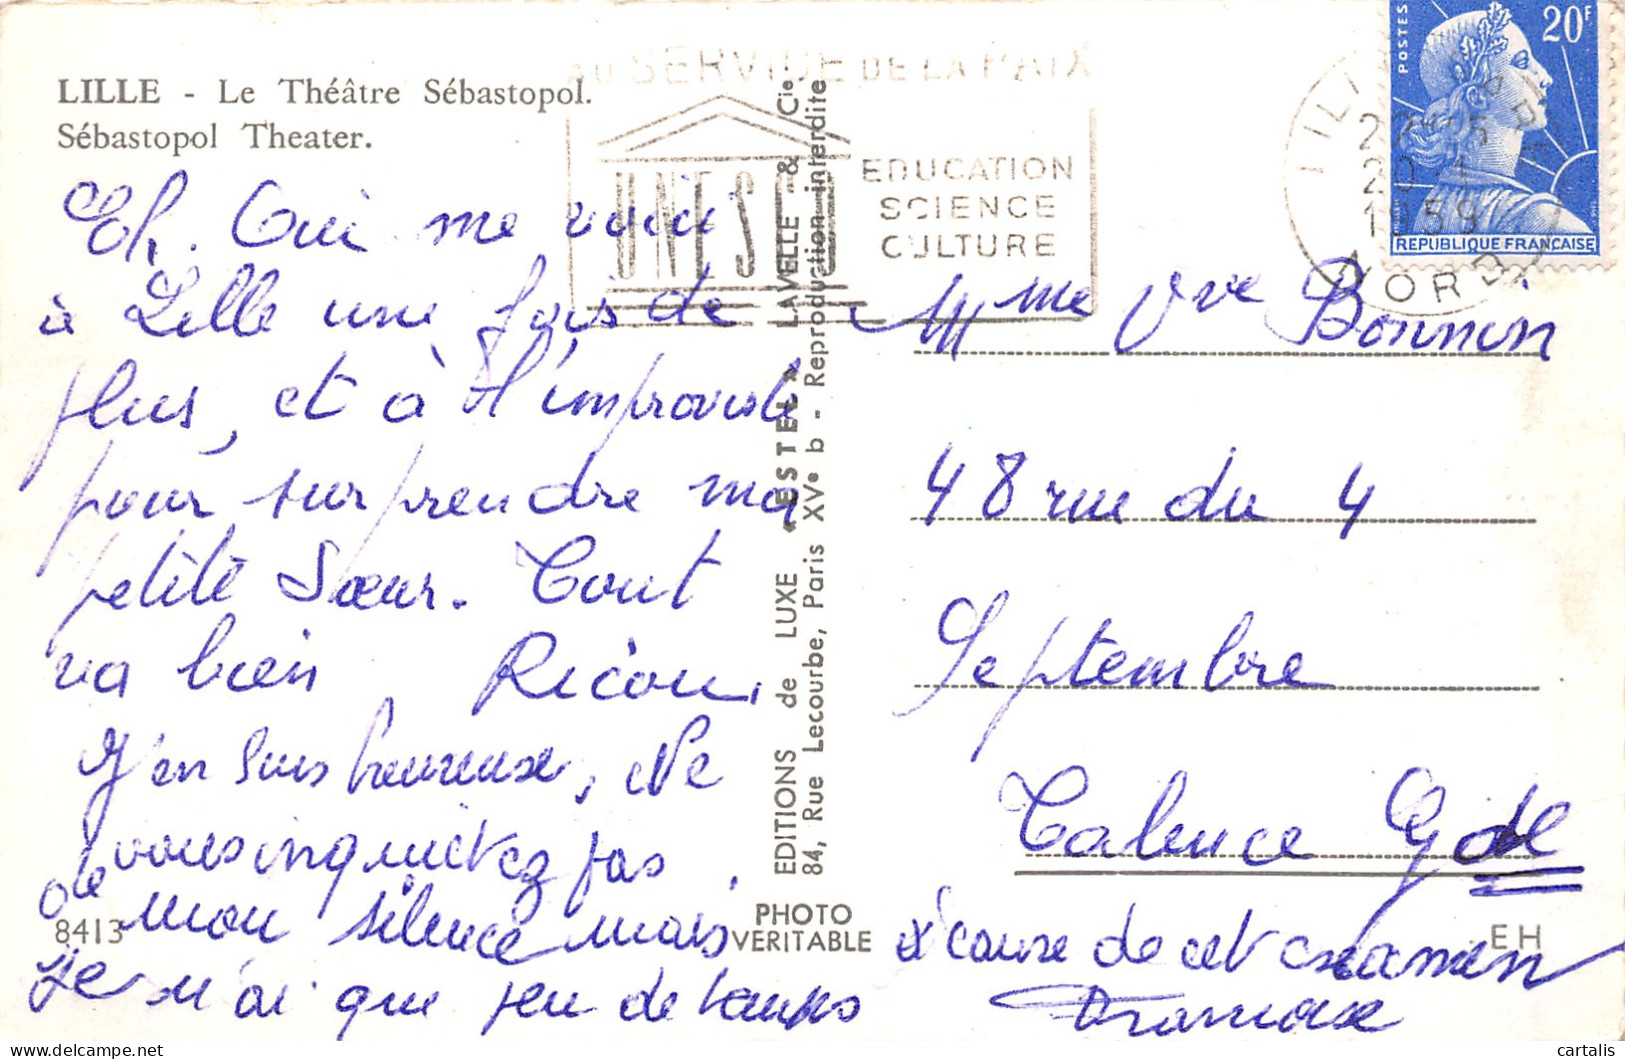 LILLE - Le Théâtre Sébastopol.
Sébastopol Theater.
AU SERVICE DE LA PAIX
UNESCO
EDUCATION
SCIENCE
CULTURE
POSTES
20F
REPUBLIQUE FRANÇAISE
LILLE GARE
20-1
1959
NORD
Eh. Oui me voici
à Lille une fois de
plus, et à l'improviste
pour surprendre ma
petite Sœur. Tout
va bien
J'en suis heureuse, Ne
vous inquiétez pas
de mon silence mais
je n'ai que peu de temps
à cause de cet examen
Mme Vve Bonnin
48 rue du 4
Septembre
Talence Gde
EDITIONS de LUXE "ESTEL" LAVELLE & Cie
84, Rue Lecourbe, Paris XVe b - Reproduction interdite
PHOTO
VERITABLE
8413
EH
cartalis